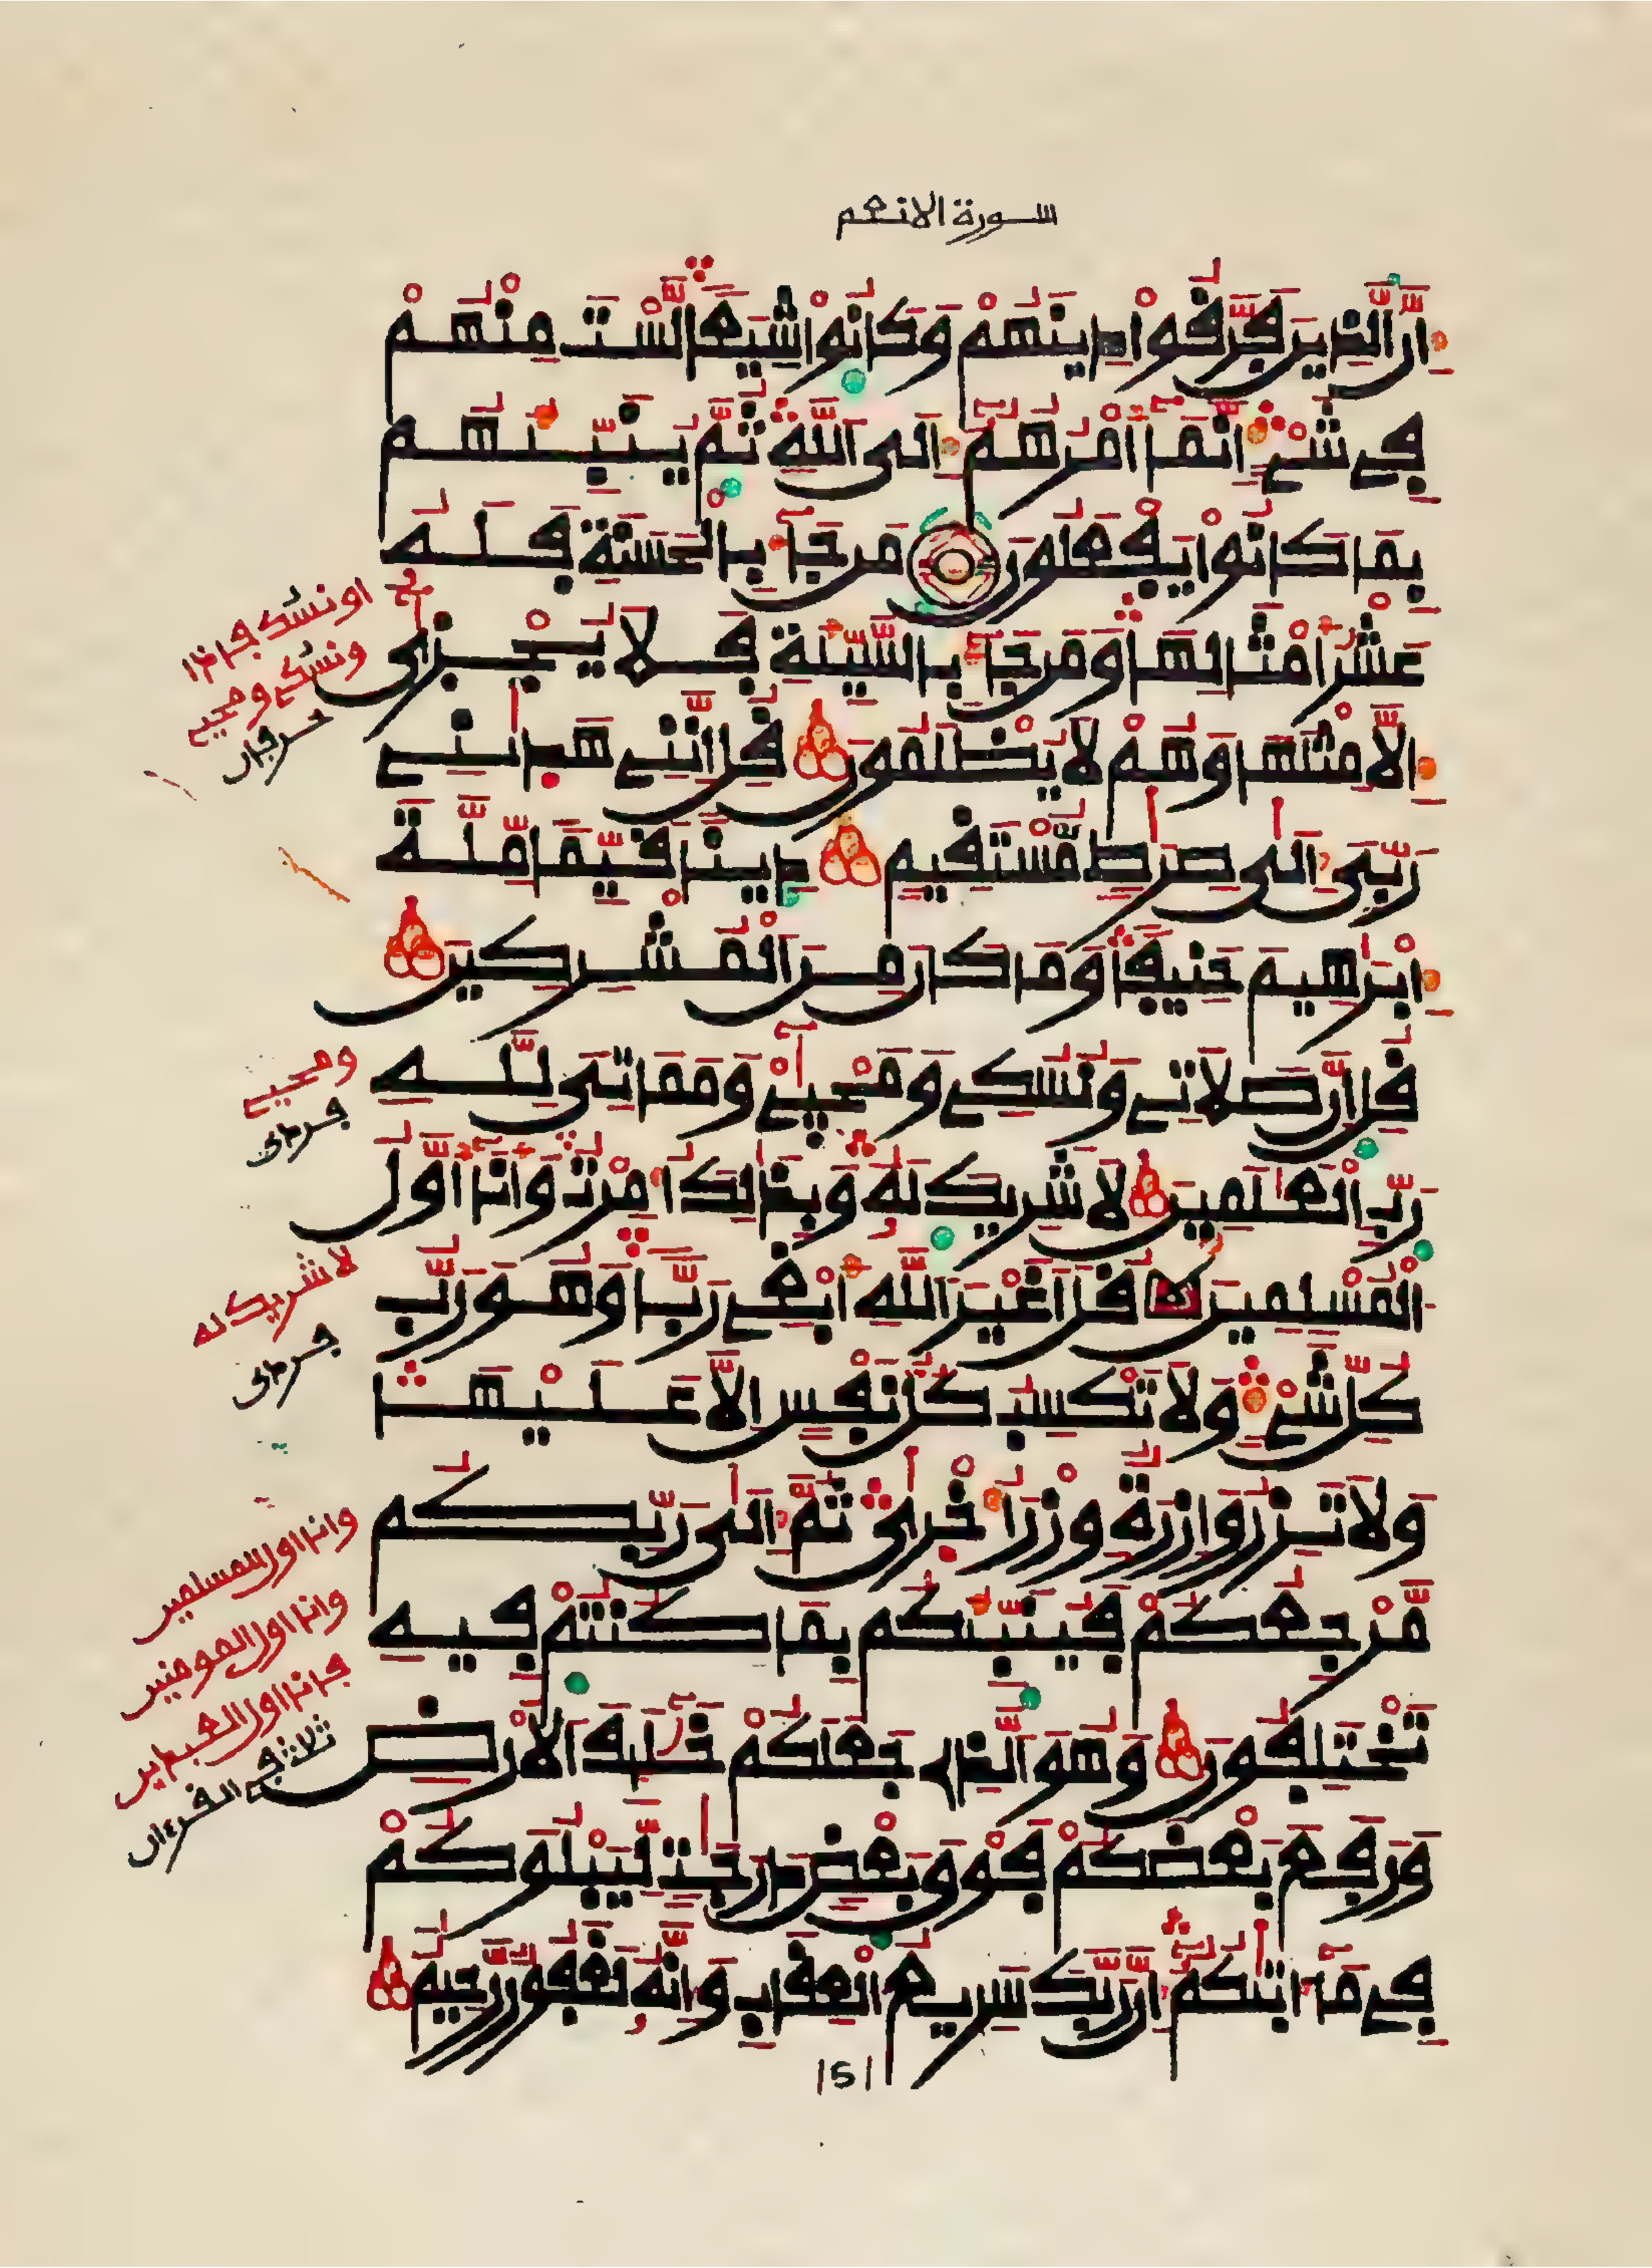 سورة الانعم
اِنَّ الذِينَ فَرَّفُواْ دِينَهُمْ وَكَانُواْ شِيَعاً لَّسْتَ مِنْهُمْ
فِے شَےْءٍ اِنَّمَآ أَمْرُهُمُۥٓ إِلَى اَللَّهِ ثُمَّ يُنَبِّئُهُم
بِمَا كَانُواْ يَفْعَلُونَ مَن جَآءَ بِالْحَسَنَةِ فَلَهُۥ
عَشْرُ أَمْثَالِهَا وَمَن جَآءَ بِالسَّيِّئَةِ فَلَا يُجْزَىٰٓ
إِلَّا مِثْلَهَا وَهُمْ لَا يُظْلَمُونَ فُلِ اِنَّنِے هَدٰينِے
رَبِّىَ إِلَىٰ صِرَٰطٍ مُّسْتَفِيمٍ دِيناً فَيِّماً مِّلَّةَ
إِبْرَٰهِيمَ حَنِيفاً وَمَا كَانَ مِنَ اَلْمُشْرِكِينَ
فُلِ اِنَّ صَلَاتِے وَنُسُكِے وَمَحْيَآےْ وَمَمَاتِىَ لِلهِ
رَبِّ اِلْعَٰلَمِينَ لَا شَرِيكَ لَهُۥ وَبِذَٰلِكَ أُمِرْتُ وَأَنَآ أَوَّلُ
اُلْمُسْلِمِينَ فُلَ اَغَيْرَ اَللَّهِ أَبْغِے رَبّاً وَهُوَ رَبُّ
كُلِّ شَےْءٍ وَلَا تَكْسِبُ كُلُّ نَفْسٍ اِلَّا عَلَيْهَا
وَلَا تَزِرُ وَازِرَةٌ وِزْرَ أُخْرَىٰ ثُمَّ إِلَىٰ رَبِّكُم
مَّرْجِعُكُمْ فَيُنَبِّئُكُم بِمَا كُنتُمْ فِيهِ
تَخْتَلِفُونَ وَهُوَ اَلذِى جَعَلَكُمْ خَلَٰٓئِفَ اَلْأَرْضِ
وَرَفَعَ بَعْضَكُمْ فَوْقَ بَعْضٍ دَرَجَٰتٍ لِّيَبْلُوَكُمْ
فِے مَآ ءَاتٰيكُمُۥٓ إِنَّ رَبَّكَ سَرِيعُ اَلْعِفَابِ وَإِنَّهُۥ لَغَفُورٌ رَّحِيمٌ
151
او نسك فاذا
ونسكے ومحيے
حرفان
ومحيے
فردى
لا شريك له
فردى
وانا اول المسلمين
وانا اول المومنين
فانا اول العبدين
ثلاث في القرءان